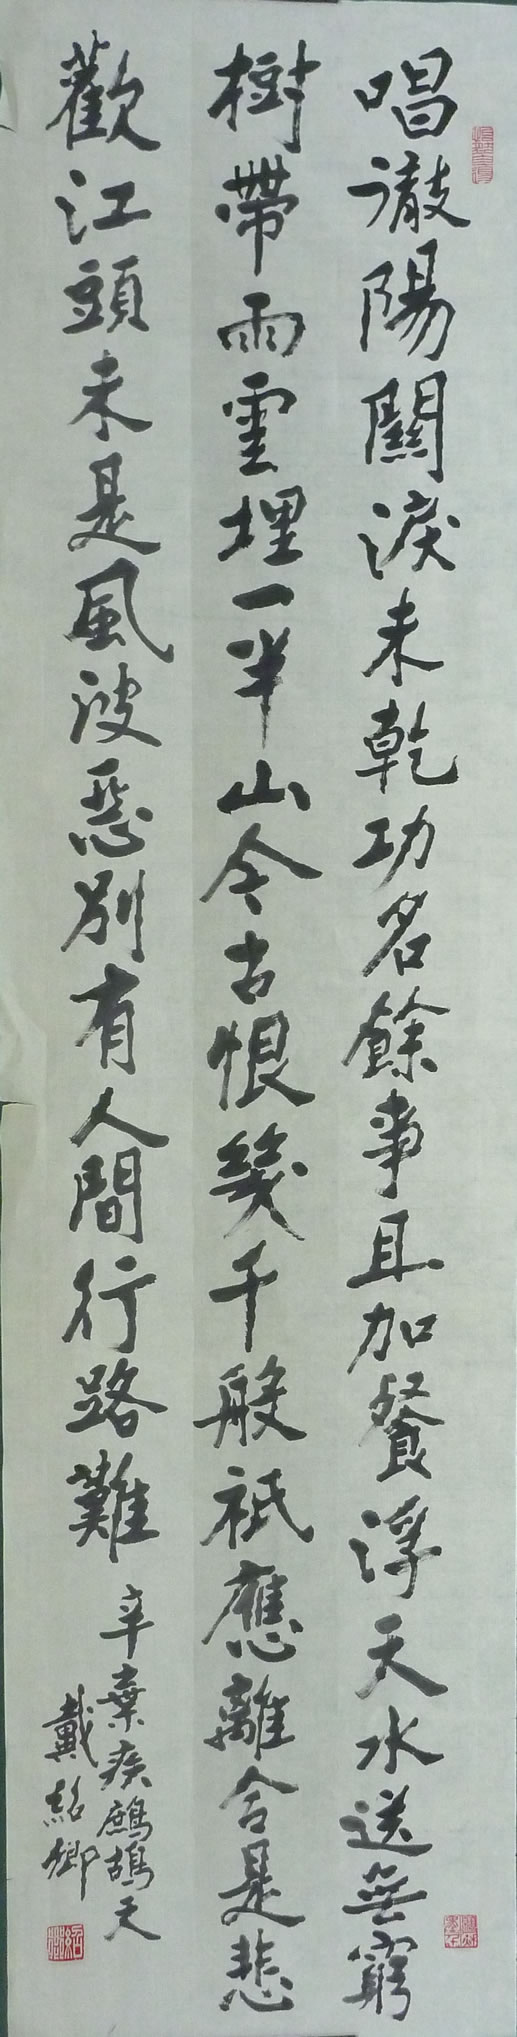 唱徹陽關淚未乾功名餘事且加餐浮天水送無窮
樹帶雨雲埋一半山今古恨幾千般祇應離合是悲
歡江頭未是風波惡別有人間行路難
辛棄疾鷓鴣天
戴紹卿